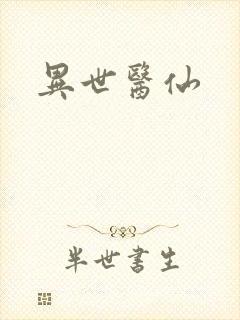 異世醫仙
半世書生